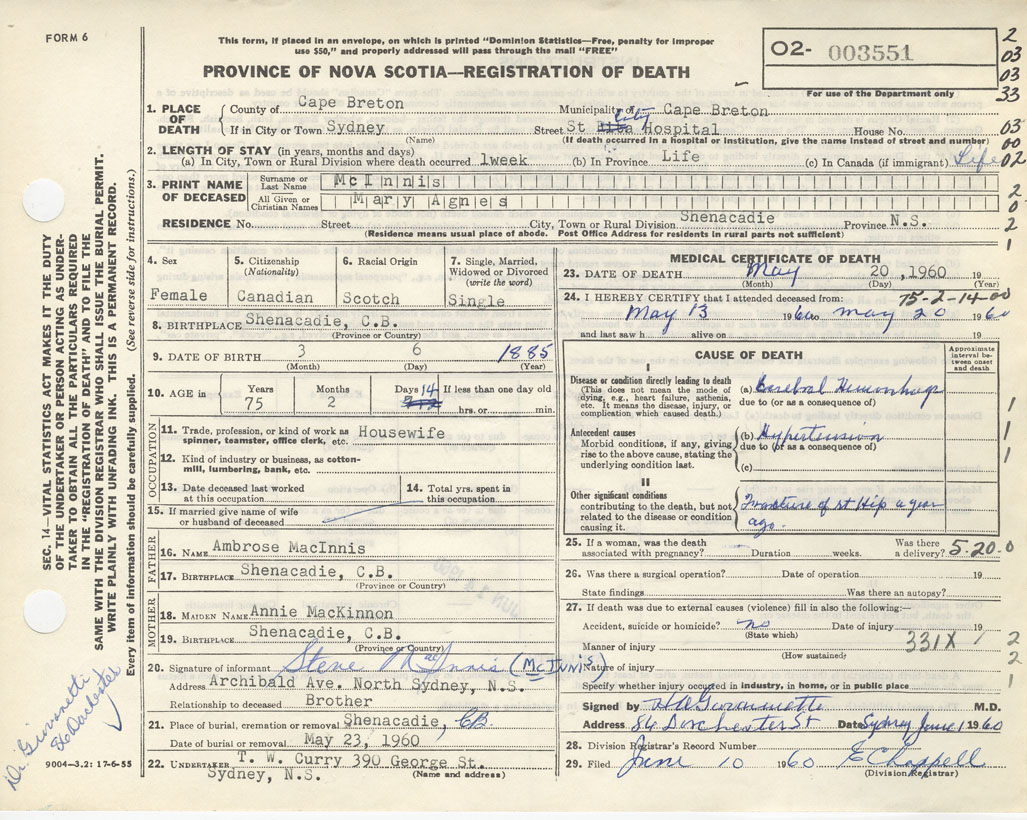 FORM 6
This form, if placed in an envelope, on which is printed "Dominion Statistics—Free, penalty for improper
use $50," and properly addressed will pass through the mail "FREE"
PROVINCE OF NOVA SCOTIA—REGISTRATION OF DEATH
O2- 003551
For use of the Department only
2
03
03
33
03
02
2
0
2
1
1. PLACE OF DEATH
County of Cape Breton Municipality of Cape Breton
If in City or Town Sydney (Name) Street St Rita City Hospital House No.
(If death occurred in a hospital or institution, give the name instead of street and number)
2. LENGTH OF STAY (in years, months and days)
(a) In City, Town or Rural Division where death occurred 1week (b) In Province Life (c) In Canada (if immigrant) Life
3. PRINT NAME OF DECEASED
Surname or Last Name McInnis
All Given or Christian Names Mary Agnes
RESIDENCE No. Street City, Town or Rural Division Shenacadie Province N.S.
(Residence means usual place of abode. Post Office Address for residents in rural parts not sufficient)
4. Sex Female
5. Citizenship (Nationality) Canadian
6. Racial Origin Scotch
7. Single, Married, Widowed or Divorced (write the word) Single
8. BIRTHPLACE Shenacadie, C.B.
(Province or Country)
9. DATE OF BIRTH 3 6 1885
(Month) (Day) (Year)
10. AGE in Years 75 Months 2 Days 14 If less than one day old hrs. or min.
OCCUPATION
11. Trade, profession, or kind of work as spinner, teamster, office clerk, etc. Housewife
12. Kind of industry or business, as cotton-mill, lumbering, bank, etc.
13. Date deceased last worked at this occupation
14. Total yrs. spent in this occupation
15. If married give name of wife or husband of deceased
FATHER
16. NAME Ambrose MacInnis
17. BIRTHPLACE Shenacadie, C.B.
(Province or Country)
MOTHER
18. MAIDEN NAME Annie MacKinnon
19. BIRTHPLACE Shenacadie, C.B.
(Province or Country)
20. Signature of informant Steve MacInnis (McINNIS)
Address Archibald Ave. North Sydney, N.S.
Relationship to deceased Brother
21. Place of burial, cremation or removal Shenacadie, CB.
Date of burial or removal May 23, 1960
22. UNDERTAKER T. W. Curry 390 George St.
Sydney, N.S. (Name and address)
MEDICAL CERTIFICATE OF DEATH
23. DATE OF DEATH May 20, 1960 19
(Month) (Day) (Year)
75-2-14-00
24. I HEREBY CERTIFY that I attended deceased from:
May 13 1960 to May 20 1960
and last saw h alive on 19
CAUSE OF DEATH
Approximate interval between onset and death
I
Disease or condition directly leading to death
(This does not mean the mode of dying, e.g., heart failure, asthenia, etc. It means the disease, injury, or complication which caused death.)
(a) Cerebral Hemorrhage
due to (or as a consequence of)
Antecedent causes
Morbid conditions, if any, giving rise to the above cause, stating the underlying condition last.
(b) Hypertension
due to (or as a consequence of)
(c)
II
Other significant conditions
contributing to the death, but not related to the disease or condition causing it.
Fracture of rt Hip a year
ago.
1
1
1
25. If a woman, was the death associated with pregnancy? Duration weeks. Was there a delivery? 5-20-0
26. Was there a surgical operation? Date of operation 19
State findings Was there an autopsy?
27. If death was due to external causes (violence) fill in also the following:—
Accident, suicide or homicide? no Date of injury 19
(State which)
Manner of injury 331X
(How sustained)
Nature of injury
Specify whether injury occurred in industry, in home, or in public place
2
2
1
Signed by M.D.
Address 86 Dorchester St Date Sydney June 1 1960
28. Division Registrar's Record Number
29. Filed June 10 1960 E Chappell
(Division Registrar)
SEC. 14—VITAL STATISTICS ACT MAKES IT THE DUTY
OF THE UNDERTAKER OR PERSON ACTING AS UNDER-
TAKER TO OBTAIN ALL THE PARTICULARS REQUIRED
IN THE "REGISTRATION OF DEATH" AND TO FILE THE
SAME WITH THE DIVISION REGISTRAR WHO SHALL ISSUE THE BURIAL PERMIT.
WRITE PLAINLY WITH UNFADING INK. THIS IS A PERMANENT RECORD.
Every item of information should be carefully supplied. (See reverse side for instructions.)
86 Dorchester
9004-3.2: 17-6-55